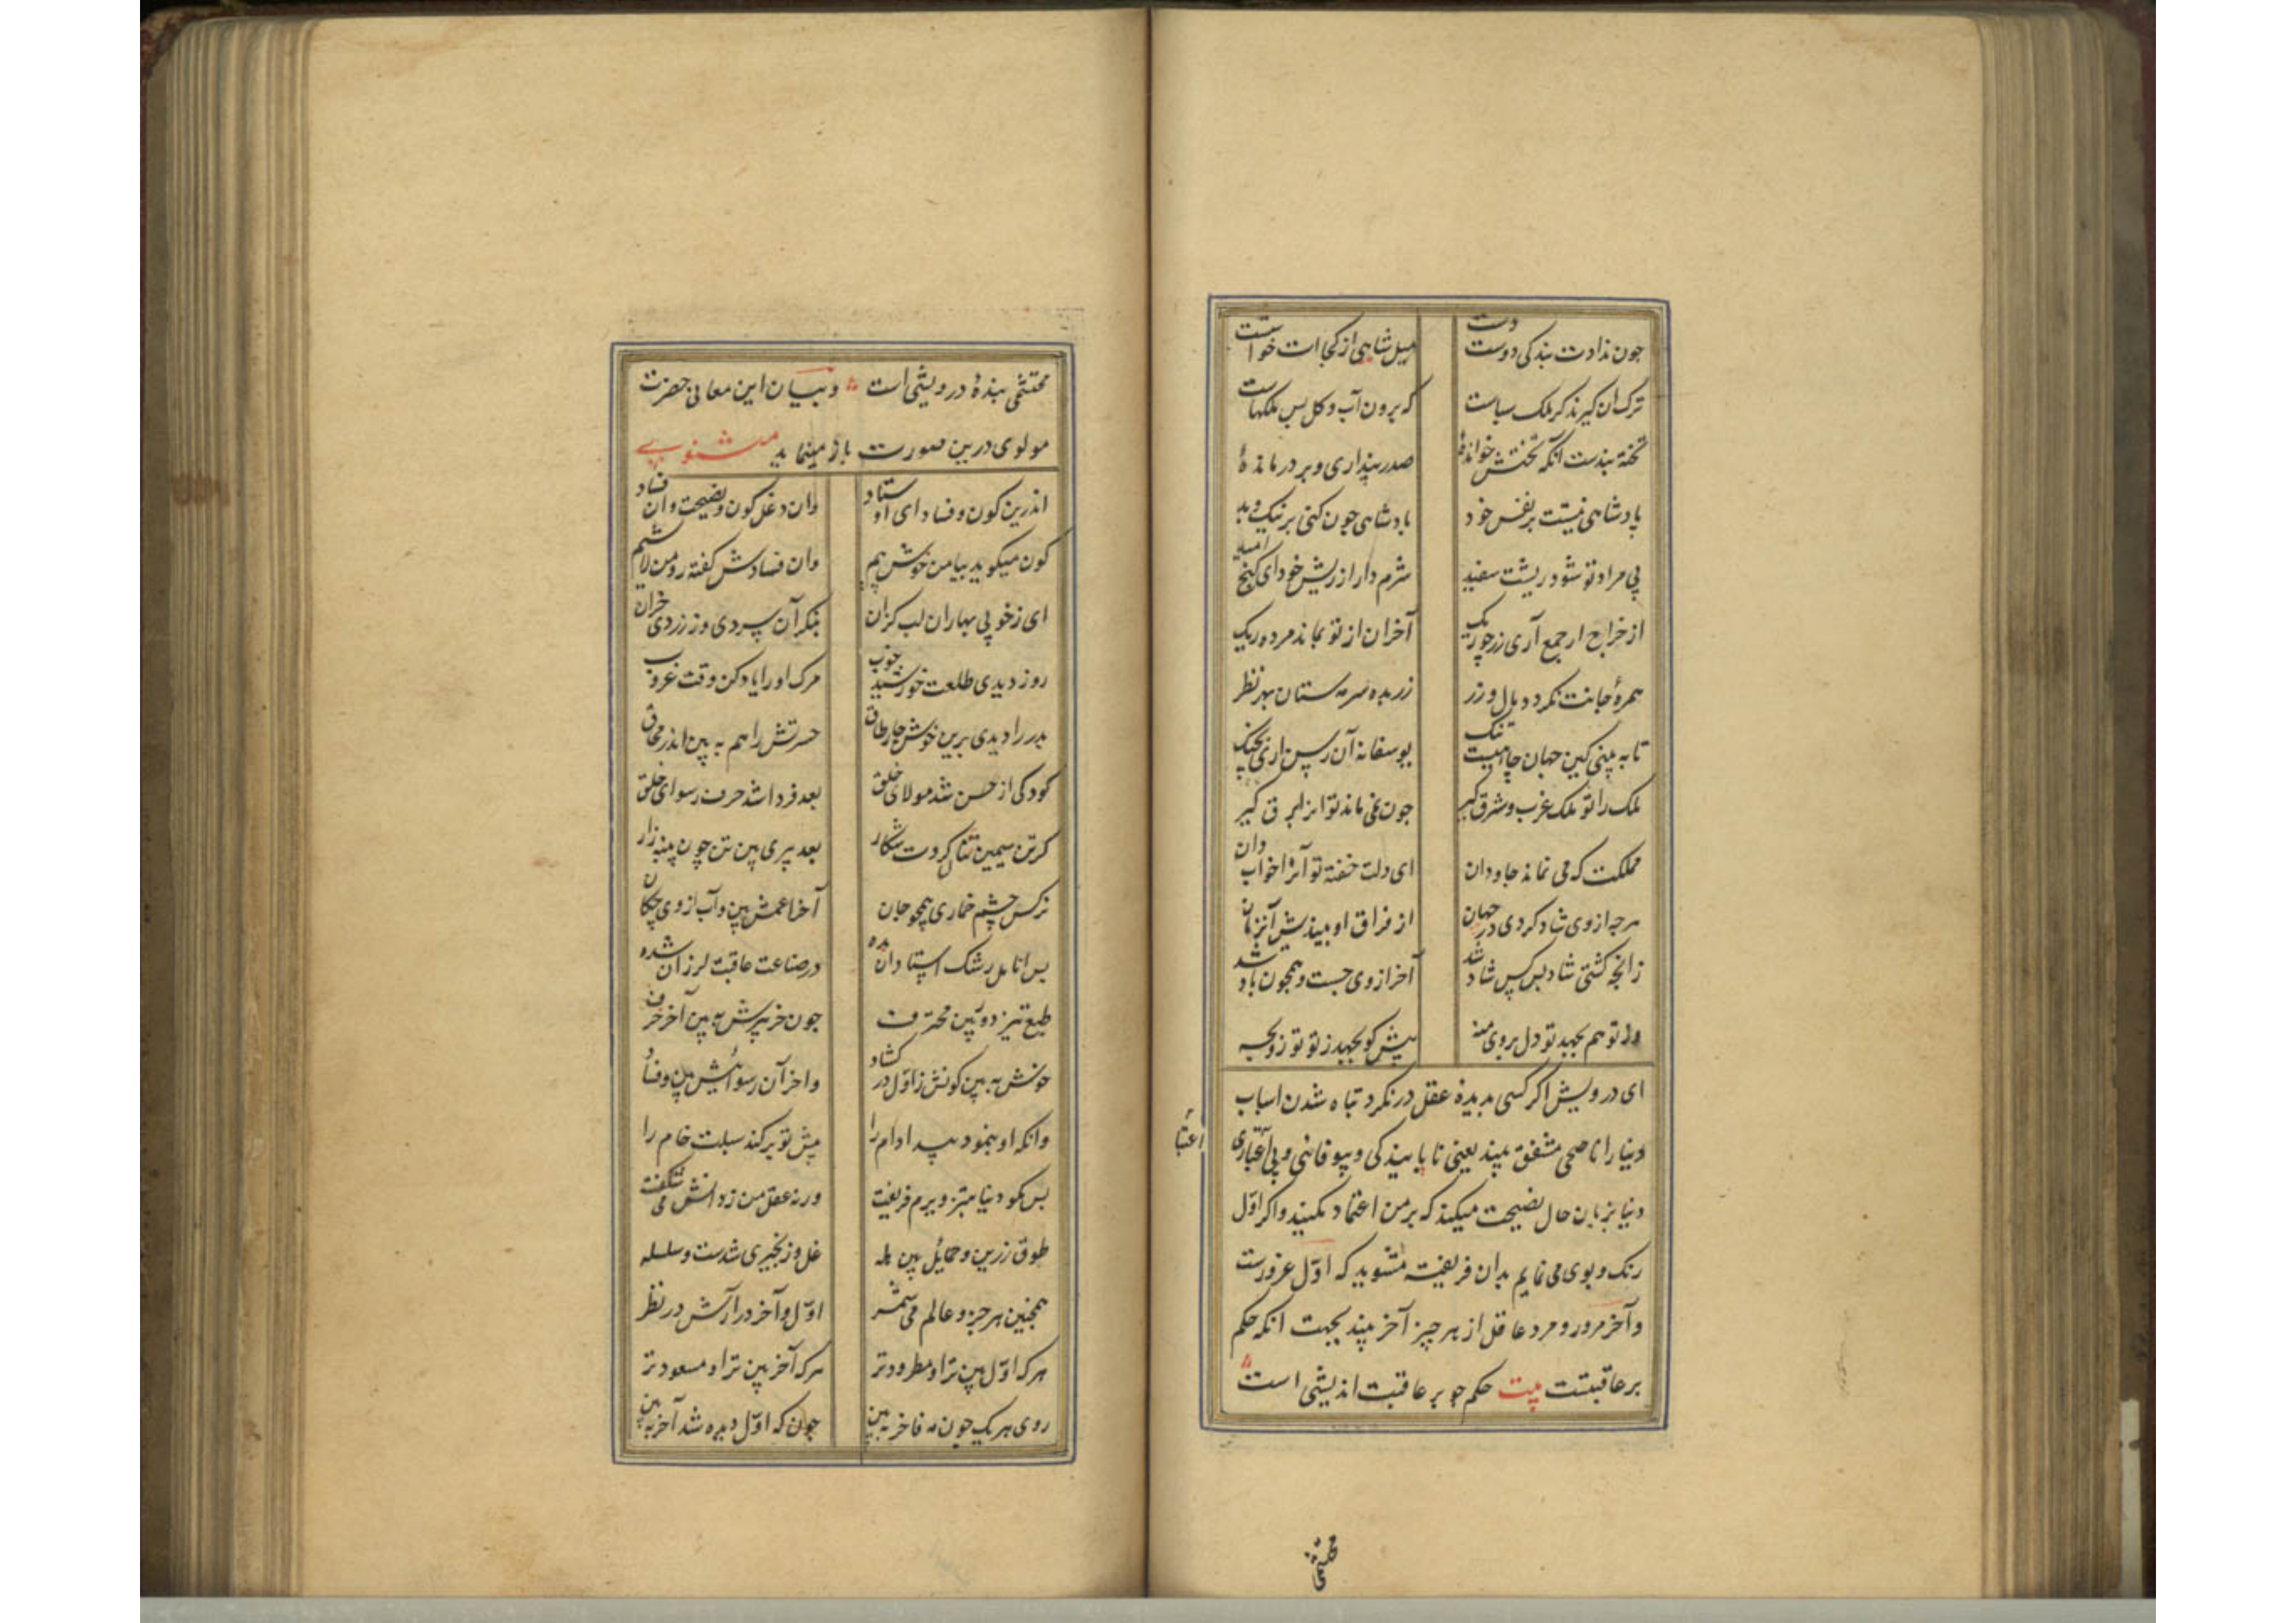 جون ندادت بندکی دوست دست میل شاهی از کجاات خواستست
ترک ان کیرند کر ملک سباست که برون آب و کل بس ملکهاست
تخته بندست آنکه تختش خواندهٔ صدر پنداری و بر در ماندهٔ
پادشاهی نیست بر نفس خود پادشاهی جون کنی بر نیک و بد
بی مراد تو شود ریشت سفید شرم دار از ریش خود ای کنج امید
از خراج ار جمع آری زر جو ریک آخر ان از تو بماند مرده ریک
همرهٔ جانت نکردد مال و زر زر بده سرمه ستان بهر نظر
تا به بینی کین جهان جاهیست تنک یوسفانه آن رسن اری بجنک
ملک را تو ملک غرب و شرق کیر جون نمی ماند تو انرا برق کیر
مملکت که می نماند جاودان ای دلت خفته تو آنرا خواب دان
هرچه از وی شاد کردی در جهان از فراق او بیندیش آنزمان
زانجه کشتی شاد بس کس شاد شد آخر از وی جست و همجون باد شد
از تو هم بجهد تو دل بروی منه پیش کو بجهد ز تو تو زو بجه
ای درویش اکر کسی بدیدهٔ عقل درنکرد تباه شدن اسباب
دنیا را ناصحی مشفق بیند یعنی ناپایندکی و بیوفائی و بی اعتباری
اعتبا
دنیا بزبان حال نصیحت میکند که بر من اعتماد مکنید واکر اوّل
رنک و بوی می نمایم بدان فریفته مشوید که اوّل غرورست
وآخر مرور و مرد عاقل از هر چیز آخر بیند بجهت انکه حکم
بر عاقبتست بیت حکم جو بر عاقبت اندیشی است
محتشمی
محتشمی بندهٔ درویشی است و بیان این معانی حضرت
مولوی درین صورت باز مینماید مثنوی
اندرین کون و فساد ای اوستاد وان دغل کون و نصیحت وان فساد
کون میکوید بیا من خوش پیم وان فسادش کفته رو من لا شیم
ای ز خوبی بهاران لب کزان بنکر آن سردی و زردی خزان
روز دیدی طلعت خورشید خوب مرک او را یاد کن وقت غروب
بدر را دیدی برین خوش جار طاق حسرتش را هم به بین اندر محاق
کودکی از حسن شد مولای خلق بعد فردا شد خرف رسوای خلق
کر تن سیمین تنان کردت شکار بعد پیری بین تن چون پنبه زار
نرکس چشم خماری همجو جان آخر اعمش بین و آب از وی جکان
بس انامل رشک استادان شده در صناعت عاقبت لرزان شده
طبع تیز دوربین محترف جون خر پیرش به بین آخر خرف
خوش به بین کونش ز اوّل در کشاد واخر آن رسوائیش بین و فساد
وانکه او بنمود پیدا دام را پیش تو برکند سبلت خام را
بس مکو دنیا بتزویرم فریفت ورنه عقل من ز دانش می شکفت
طوق زرین و حمایل بین هله غل و زنجیری شدست و سلسله
همجنین هر جزو عالم می شمر اوّل و آخر درآرش در نظر
هرکه اوّل بین تر او مطرودتر هرکه آخر بین تر او مسعودتر
روی هریک جون مه فاخر به بین جونکه اوّل دیده شد آخر به بین